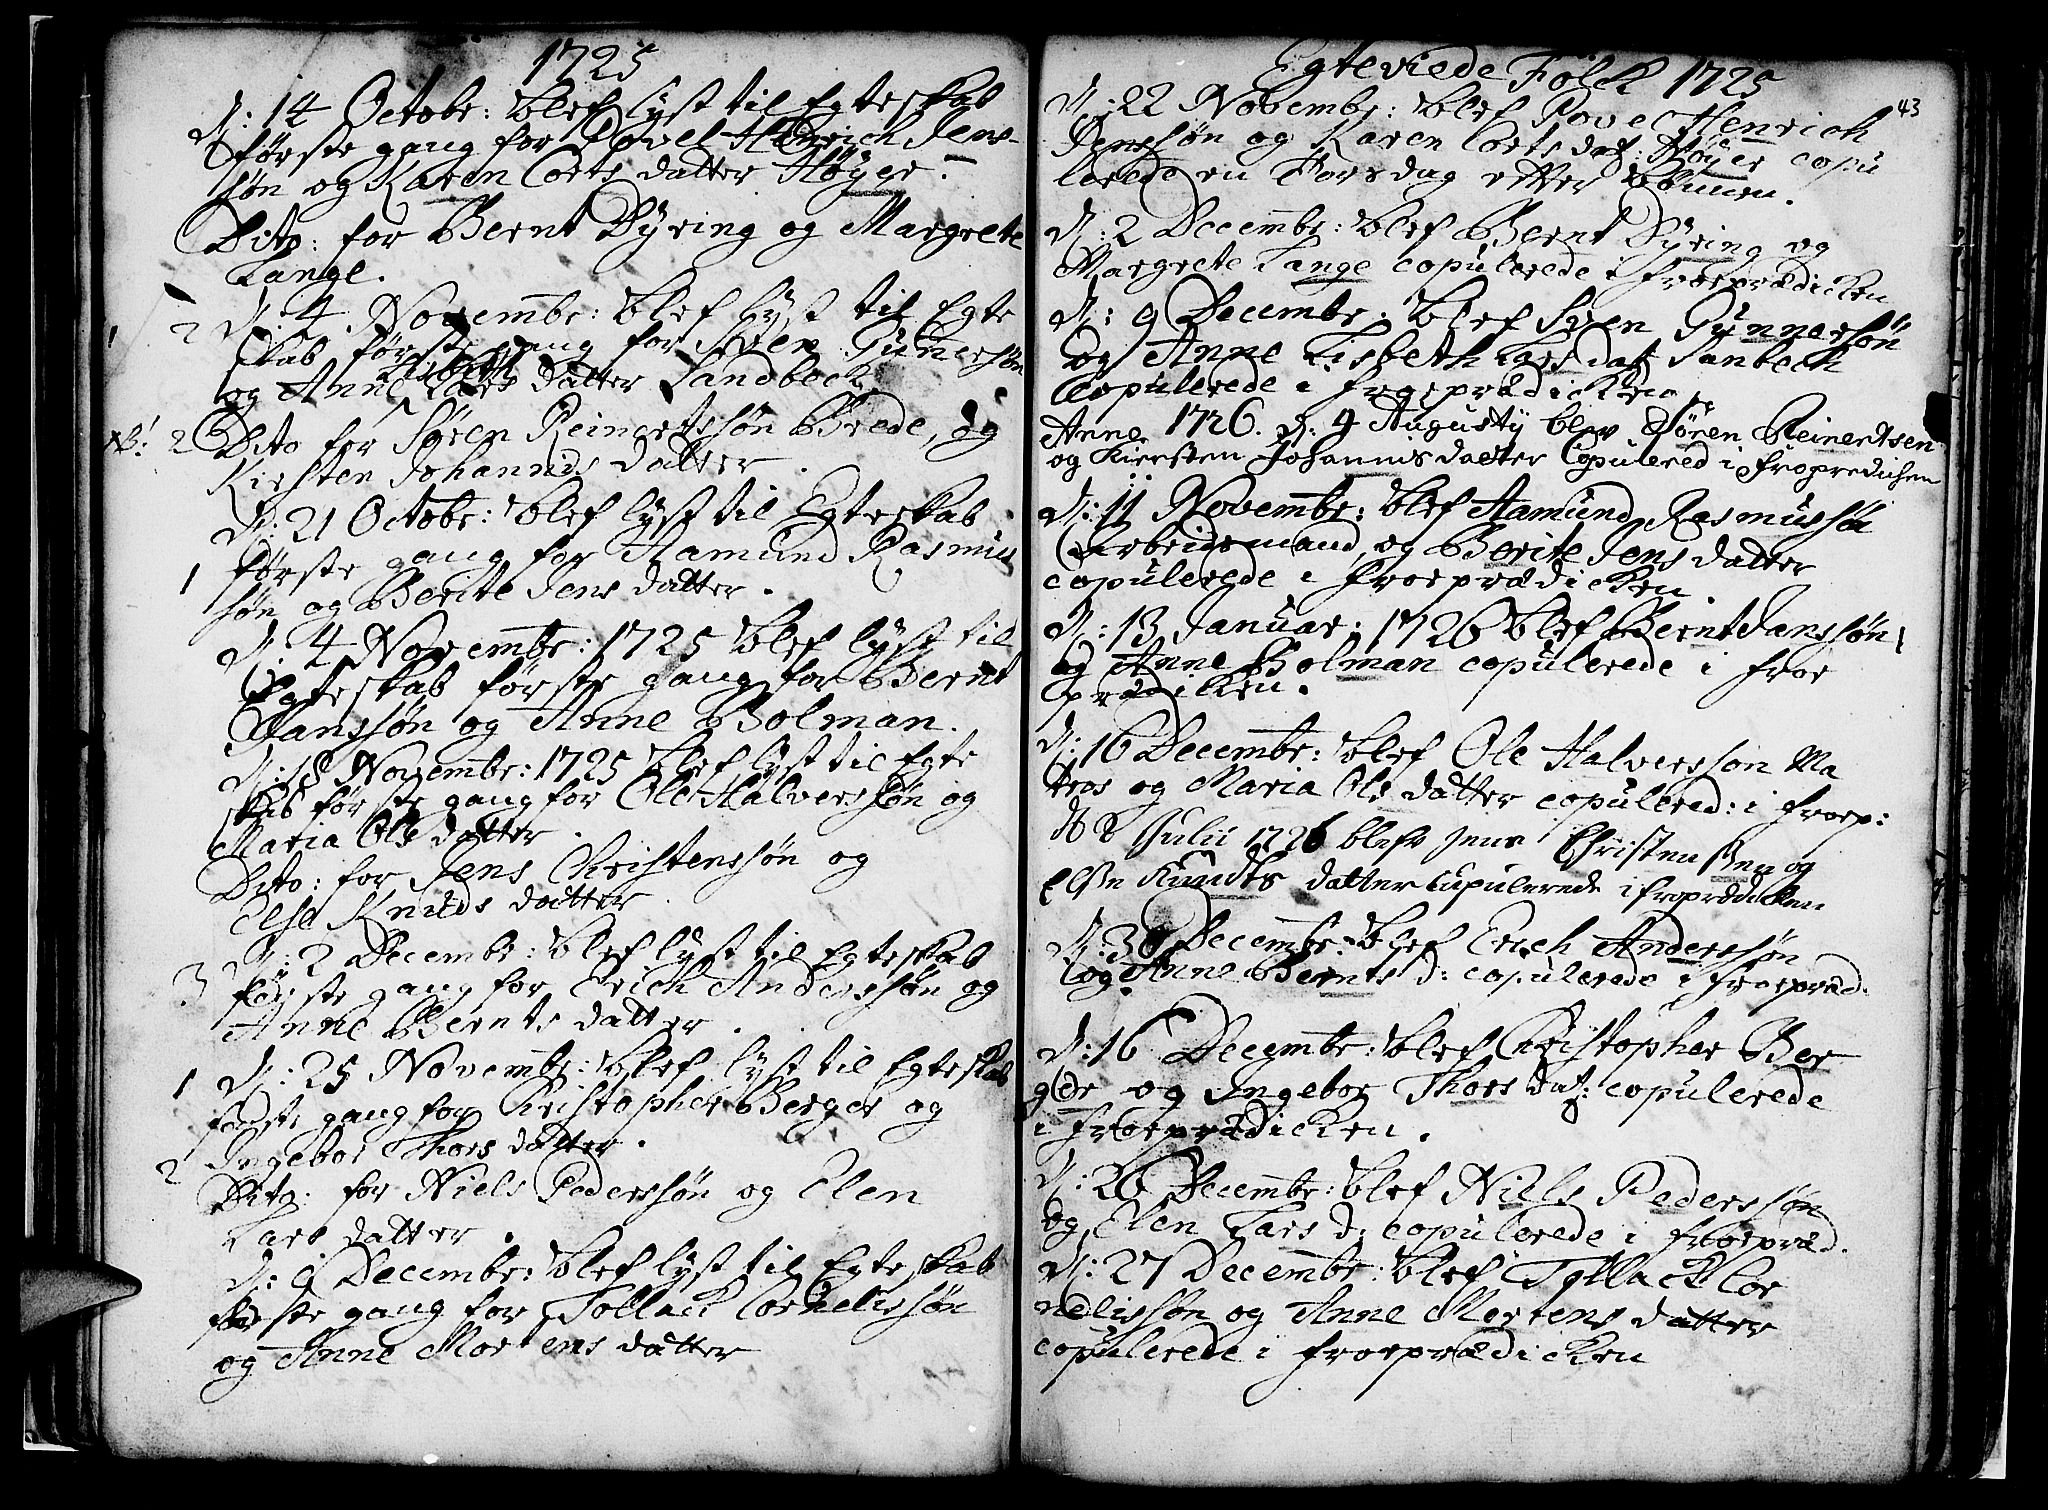 1725
d: 14 Octobr: blef lyst til Egteskab
første gang for Povel Henrich Jens-
søn og Karen Corts datter Høyer.
Dito: for Bernt Dyring og Margrete
Lange.
1 2 d: 4 Novembr: blef lyst til Egte
skab første gang for Sven Gunersøn
Lisbeth
og Anne Lars datter Sandbeck
NB! 2 Dito for Søren Reinertssøn Brede, og
Kirsten Johannis datter.
d: 21 Octobr: blef lyst til Egteskab
første gang for Aamund Rasmus
1
søn og Berite Jens datter.
d: 4 Novembr: 1725 blef lyst til
Egteskab første gang for Bernt
Janssøn og Anne Bolman.
d: 18 Novembr: 1725 blef lyst til Egte
skab første gang for Ole Halverssøn og
Maria Ols datter.
Dito: for Jens Christenssøn og
Else Knuds datter.
d: 2 Decembr: blef lyst til Egteskab
3 første gang for Erich Anderssøn og
Anne Bernts datter.
1 d: 25 Novembr: blef lyst til Egteskab
første gang for Christopher Berger og
Ingebor Thors datter.
2
Dito: for Niels Pederssøn og Elen
Lars datter.
d: 9 Decembr: blef lyst til Egteskab
første gang for Tollack Cornelissøn
og Anne Mortens datter
Egteviede Folck 1725
43
d: 22 Novembr: blef Povel Henrich
Jenssøn og Karen Corts dat: Høyer copu
lerede en Torsdag efter Bønnen.
d: 2 Decembr: blef Bernt Dyring og
Margrete Lange copulerede i froeprædicken
d: 9 Decembr: blef Sven Gunnersøn
og Anne Lisbeth Lars dat: Sanbech
Copulerede i froeprædicken.
Anno 1726. d: 9 Augusty blev Søren Reinertsen
og Kiersten Johannis daatter Copulered i fropredichen
d: 11 Novembr: blef Aamund Rasmussøn
Arbeidsmand, og Berite Jens datter
copulerede i froeprædicken.
d: 13 Januar: 1726 blef Bernt Janssøn
og Anne Bolman copulerede i froe
prædicken.
d: 16 Decembr: blef Ole Halverssøn Ma
tros og Maria Ols datter copulered: i froep:
Julii 1726 blefv Jens Christensen og
Else Knudts datter cupulerede i froprædicken
d: 30 Decembr: blef Erich Anderssøn
og Anne Bernts d: copulerede i froepræd.
d: 16 Decembr: blef Christopher Ber
ger og Ingebor Thors dat: copulerede
i froeprædicken.
d: 26 Decembr: blef Niels Pederssøn
og Elen Lars d: copulerede i froepræd.
d: 27 Decembr: blef Tollack Cor
nelissøn og Anne Mortens datter
copulerede i froeprædicken